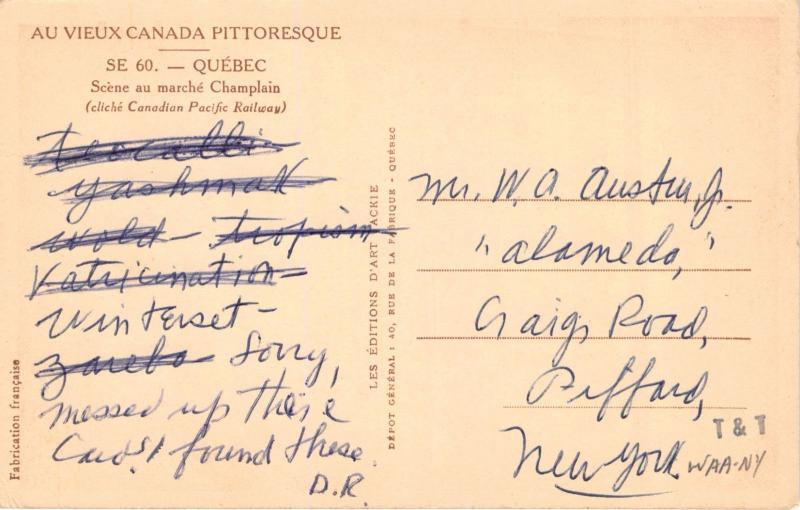 AU VIEUX CANADA PITTORESQUE
SE 60. — QUÉBEC
Scène au marché Champlain
(cliché Canadian Pacific Railway)
teocalli-
yashmak
wold- tropism
Vatricination-
Winterset-
zareba Sorry,
messed up these
Cards! found these
D.R.
Fabrication française
LES ÉDITIONS D'ART ACKIE
DÉPOT GÉNÉRAL : 40, RUE DE LA FABRIQUE - QUÉBEC
Mr. W. A. Austin, Jr.
"Alameda,"
Craigs Road,
Piffard,
New York
T & T
WAA-NY